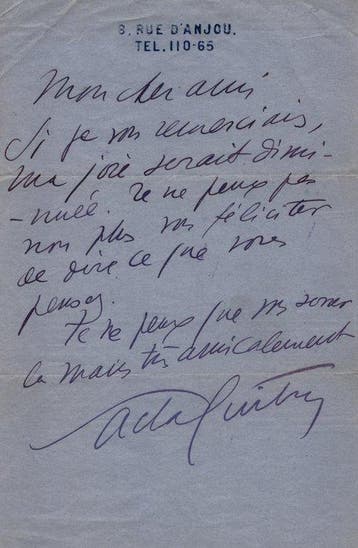 8, RUE D'ANJOU.
TEL. 110-66
Mon cher ami
Si je vous remerciais,
ma joie serait dimi-
-nuée. Je ne peux pas
non plus vous féliciter
de dire ce que vous
pensez.
Je ne peux que vous serrer
la main très amicalement
Sacha Guitry